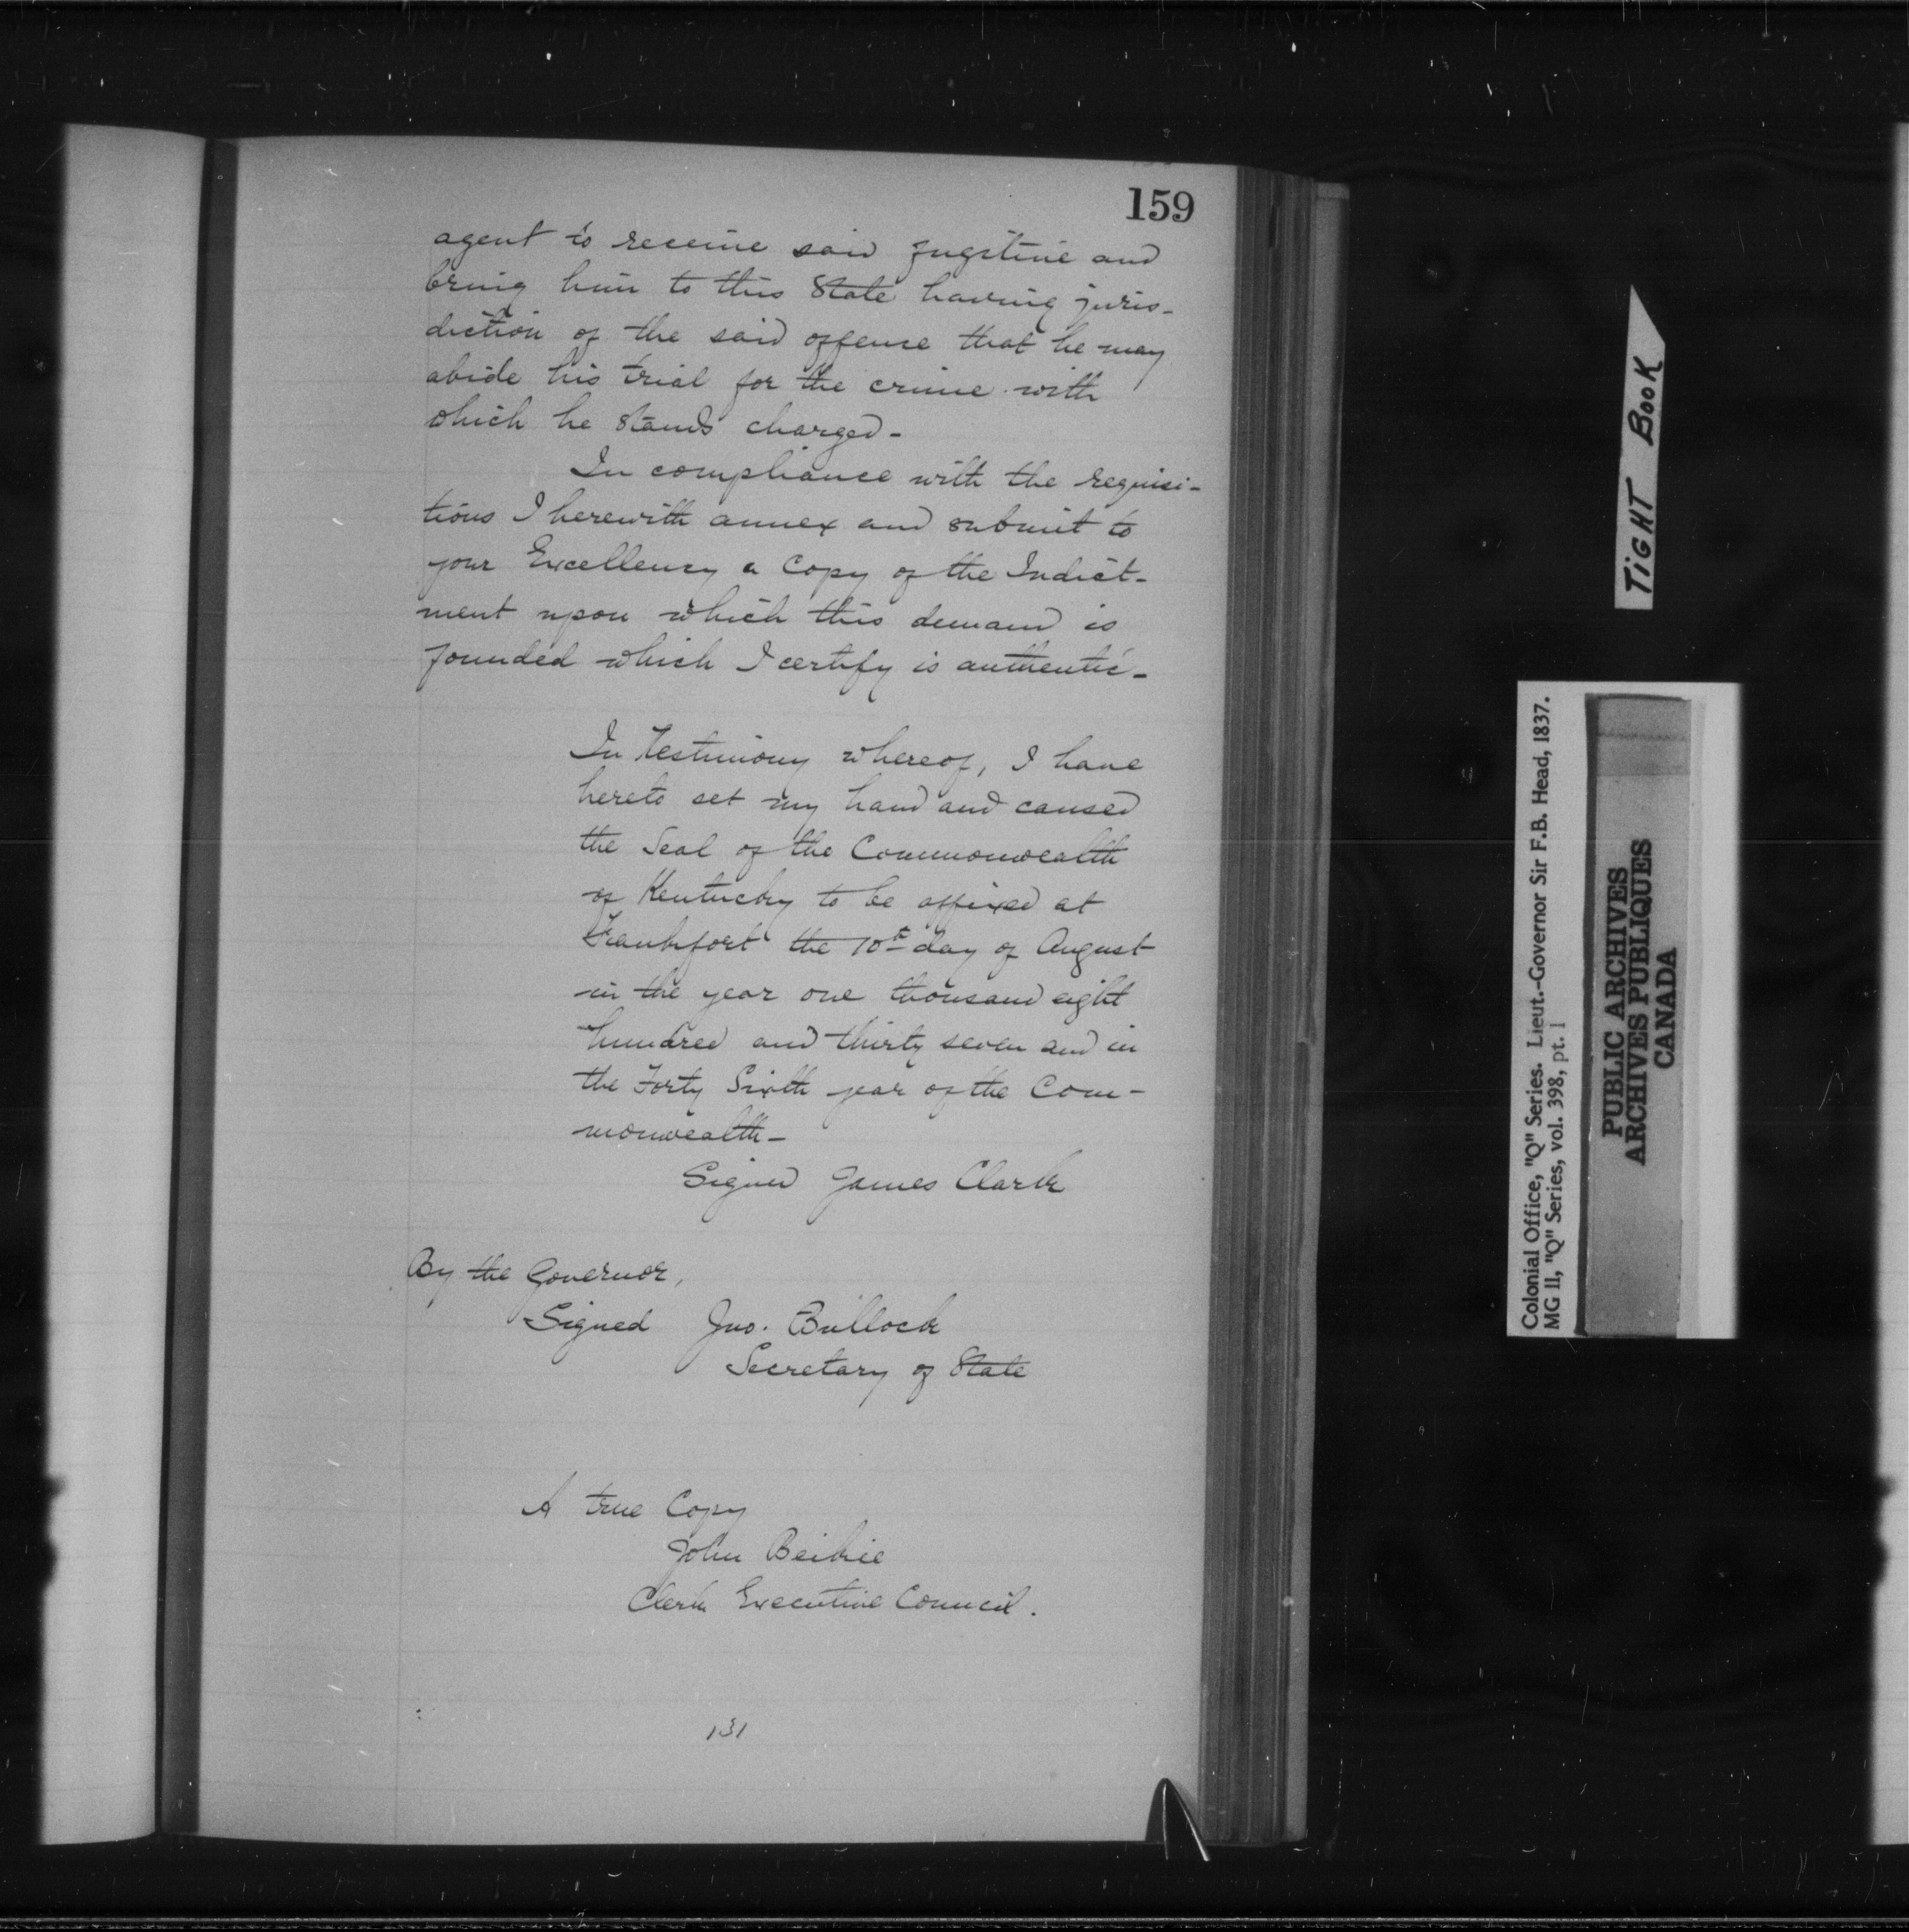 159
agent to receive said fugitive and
bring him to this State having juris-
diction of the said offense that he may
abide his trial for the crime with
which he stands charged -
In compliance with the requisi-
tions I herewith annex and submit to
your Excellency a Copy of the Indict-
ment upon which this demand is
founded which I certify is authentic -
In testimony whereof, I have
hereto set my hand and caused
the Seal of the Commonwealth
of Kentucky to be affixed at
Frankfort the 10th day of August
in the year one thousand eight
hundred and thirty seven and in
the Forty Sixth year of the Com-
monwealth -
Signed James Clark
By the Governor,
Signed Jno. Bullock
Secretary of State
A true Copy
John Beikie
Clerk Executive Council.
131
TIGHT BOOK
Colonial Office, "Q" Series. Lieut.-Governor Sir F.B. Head, 1837.
MG 11, "Q" Series, vol. 398, pt. 1
PUBLIC ARCHIVES
ARCHIVES PUBLIQUES
CANADA